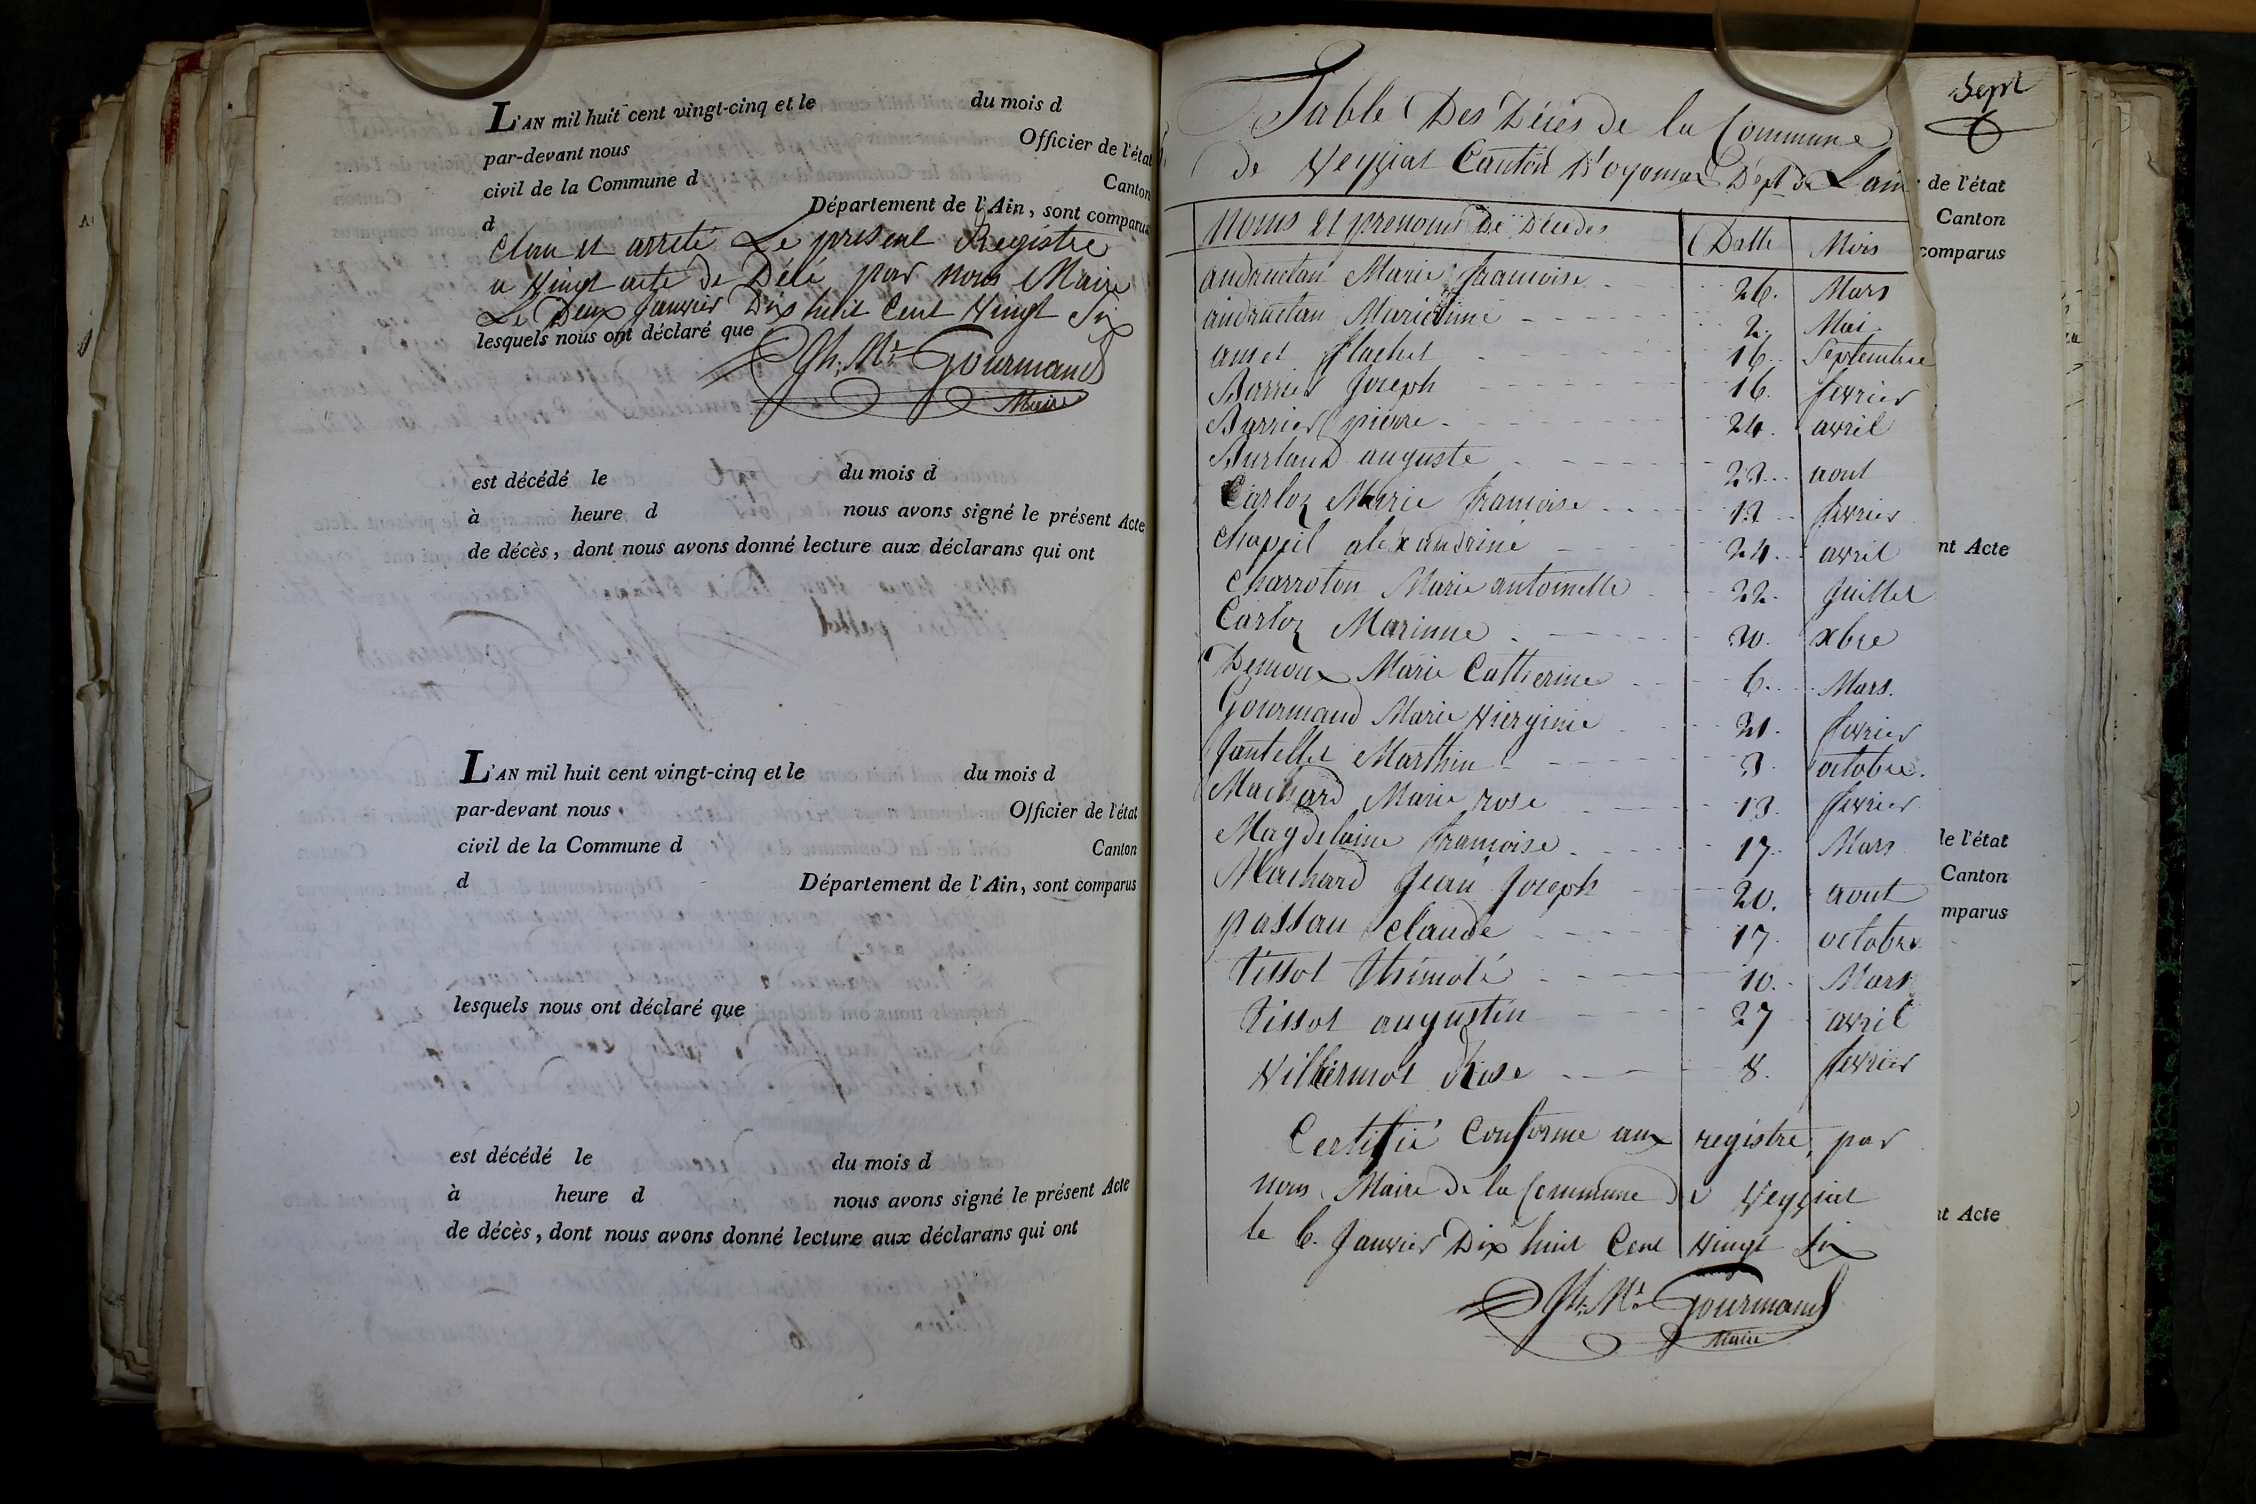 L'AN mil huit cent vingt-cinq et le du mois d
par-devant nous Officier de l'état
civil de la Commune d Canton
d Département de l'Ain, sont comparus
Clau et arreté Le present Registre
a Vingt acte de Décé par nous Maire
Le Deux Janvier Dix huit Cent Vingt Six
lesquels nous ont déclaré que
Gourmand
Maire
est décédé le du mois d
à heure d nous avons signé le présent Acte
de décès, dont nous avons donné lecture aux déclarans qui ont
L'AN mil huit cent vingt-cinq et le du mois d
par-devant nous Officier de l'état
civil de la Commune d Canton
d Département de l'Ain, sont comparus
lesquels nous ont déclaré que
est décédé le du mois d
à heure d nous avons signé le présent Acte
de décès, dont nous avons donné lecture aux déclarans qui ont
Table Des Décès de la Commune
de Veyziat Canton D'oyonnax Dépt de Lain
Noms et prenoms De Décédes Datte Mois
Marie francoise 26. Mars
2. Mai
16. Septembre
Barrier Joseph 16. fevrier
Barrier pierre 24. avril
Burland auguste 22. aout
Carloz Marie francoise 12 fevrier
Chappil aléxandrine 24. avril
Charroton Marie antoinette 22. Juillet
Carloz Marianne 30. xbre
Demoux Marie Catherine 6. Mars.
Gourmand Marie Vierginie 21. fevrier
Jantellet Marthin 3. octobre.
Machard Marie rose 13. fevrier
Magdelaine francoise 17. Mars
Machard Jean Joseph 20. aout
passau Claude 17. octobre
tissot thimoté 10. Mars
tissot augustin 27 avril
Villermot Rose 8. fevrier
Certifié Conforme aux registre, par
nous Maire de la Commune de Veyziat
le 6. Janvier Dix huit Cent Vingt Six
Gourmand
Maire
Sept
de l'état
Canton
comparus
nt Acte
de l'état
Canton
mparus
nt Acte